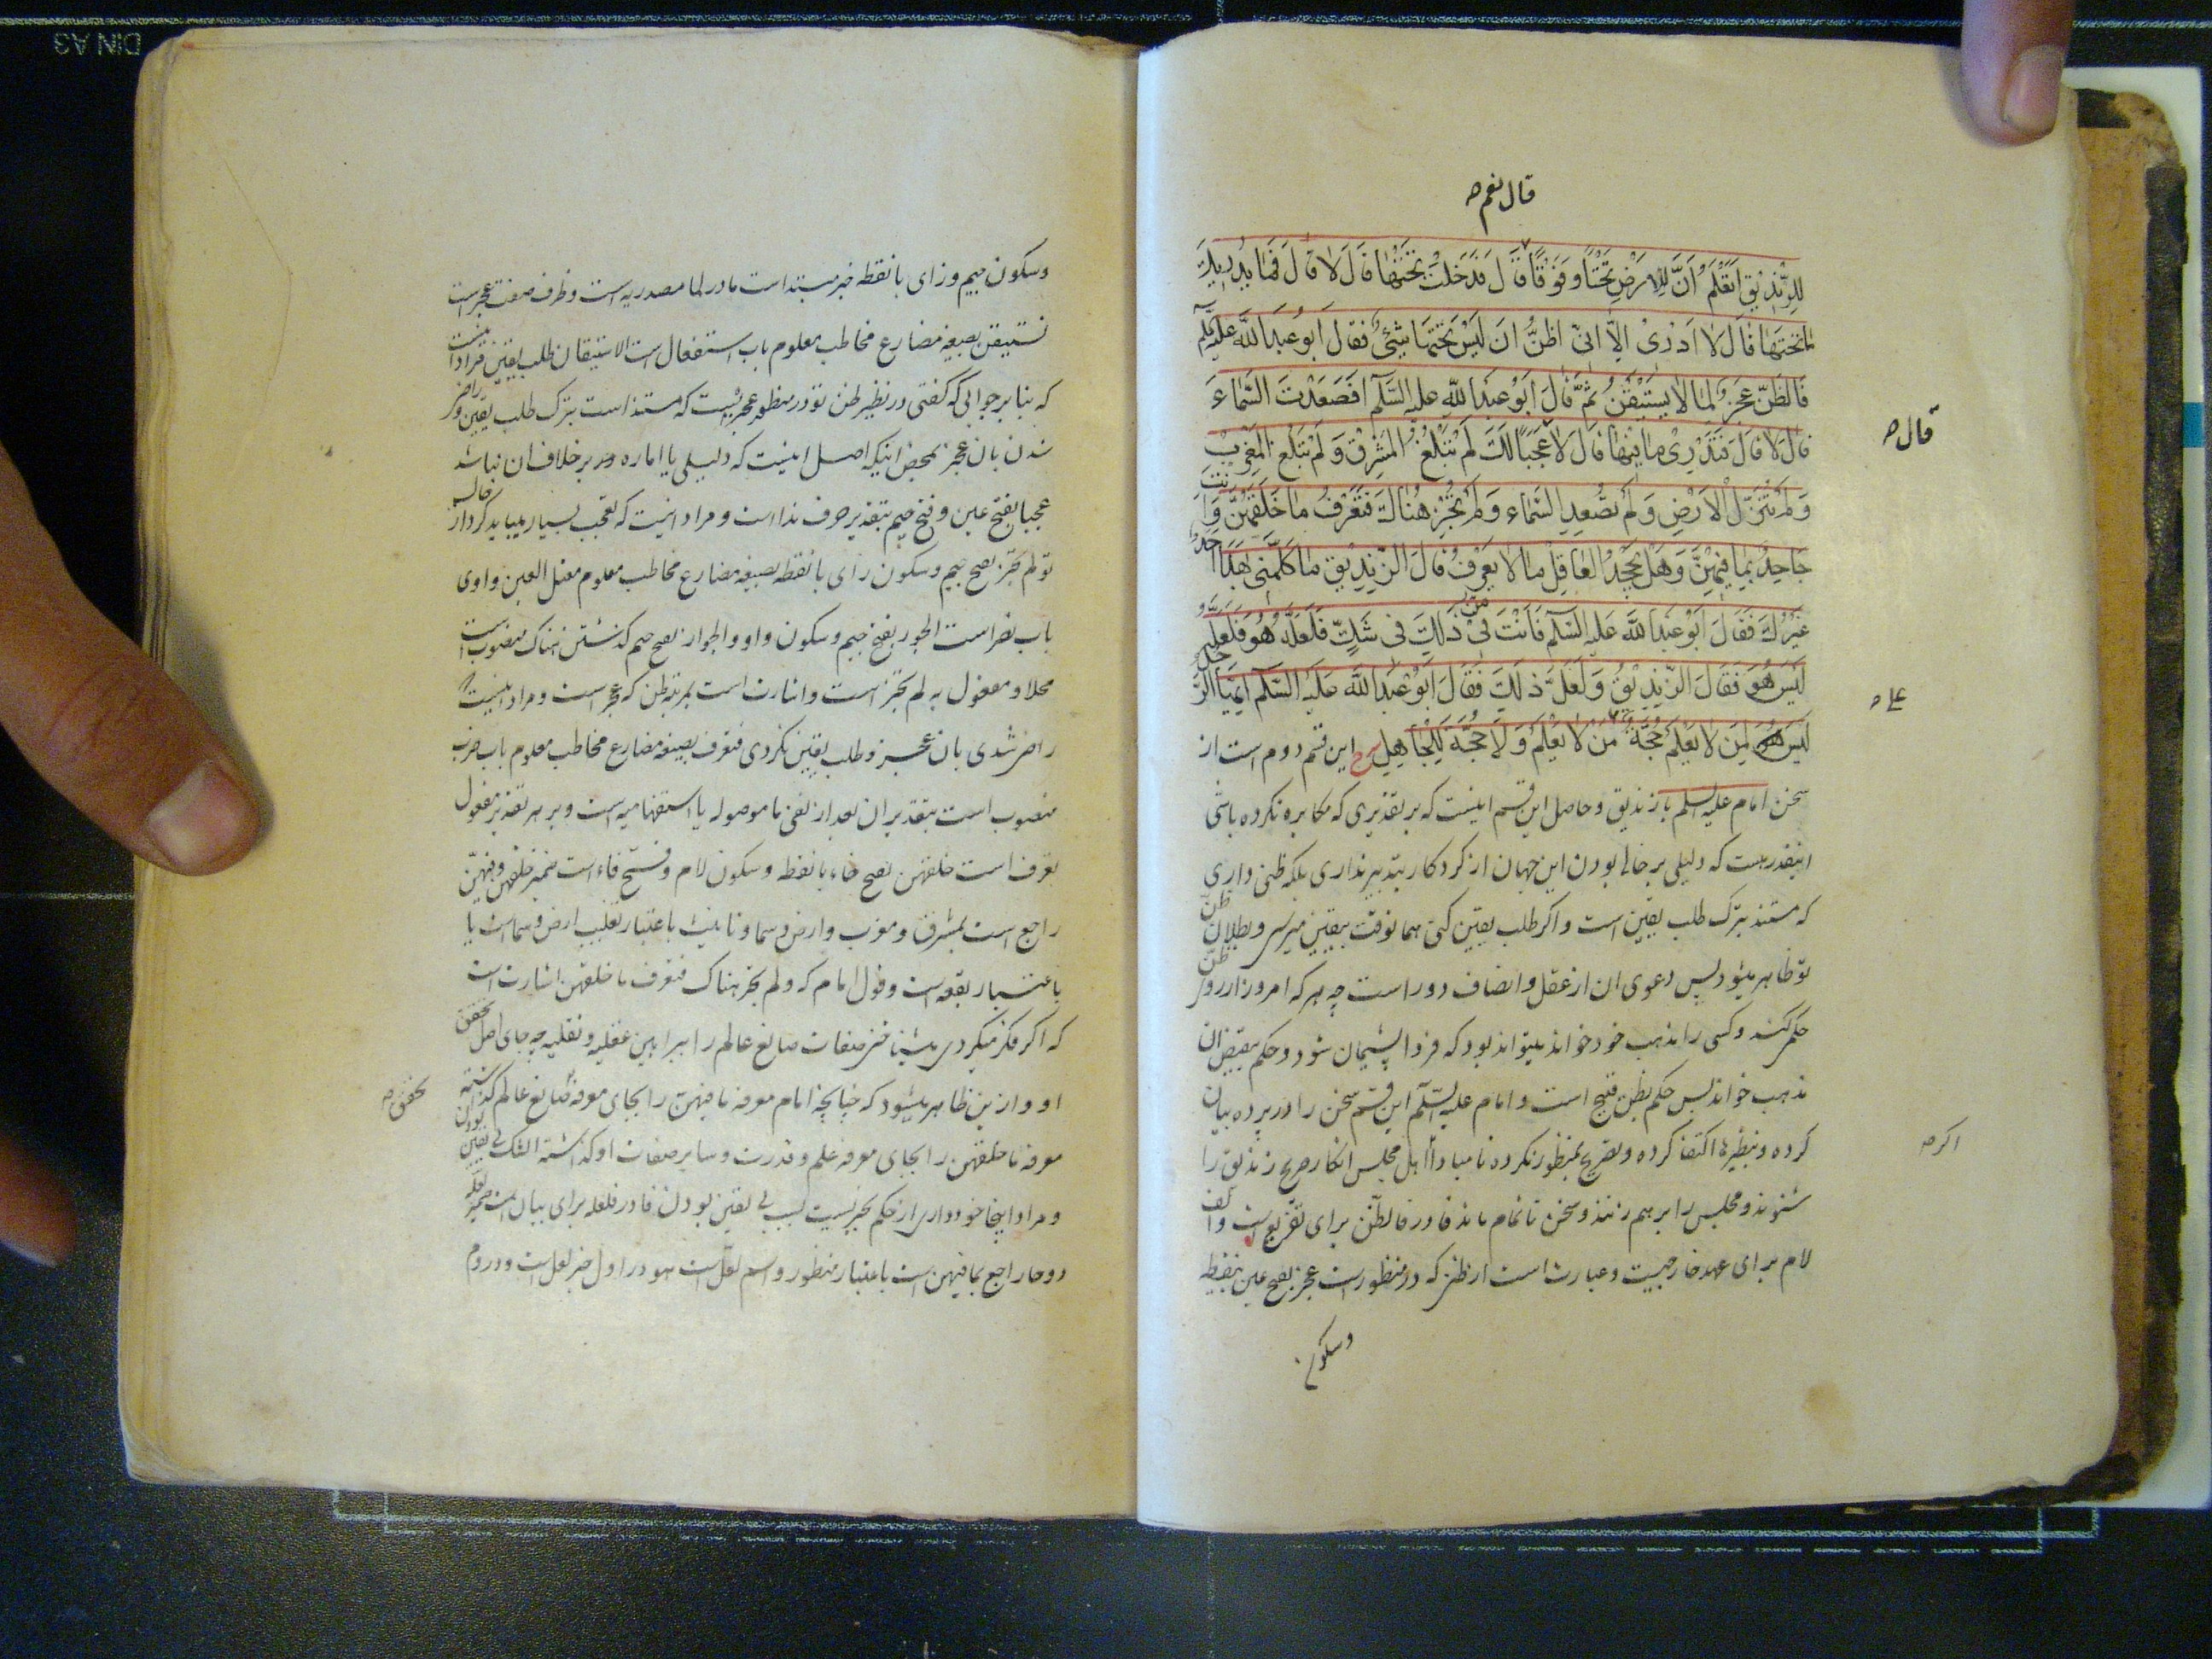 قال نعم ص
للزِّنْدِيْقِ اَتَعْلَمُ اَنَّ لِلاَرْضِ تَحْتًا وَ فَوْقًا قَالَ فَدَخَلْتَ تَحْتَهَا قَالَ لَا قَالَ فَمَا يُدْرِيكَ
مَا تَحْتَهَا قَالَ لَا اَدْرِىْ اِلَّا اَنِّىْ اَظُنُّ اَنْ لَيْسَ تَحْتَهَا شَيْئٌ فَقَالَ اَبُو عَبْدِ اللهِ عَلَيْهِ السَّلَم
فَالظَّنُّ عَجْزٌ لِمَا لَا يَسْتَيْقِنُ ثُمَّ قَالَ اَبُوْ عَبْدِ اللهِ عليه السَّلَم اَفَصَعِدْتَ السَّمَاءَ
قال ص
قَالَ لَا قَالَ فَتَدْرِىْ مَا فِيْهَا قَالَ لَا عَجَبًا لَكَ لَمْ تَبْلُغِ الْمَشْرِقَ وَ لَمْ تَبْلُغِ الْمَغْرِبَ
وَ لَمْ تَنْزِلْ الْاَرْضَ وَ لَمْ تَصْعَدِ السَّمَاءَ وَ لَمْ تَجُزْ هُنَاكَ فَتَعْرِفُ مَا خَلْفَهُنَّ وَ اَنْتَ
جَاحِدٌ بِمَا فِيْهِنَّ وَ هَلْ يَجْحَدُ الْعَاقِلُ مَا لَا يَعْرِفُ قَالَ الزِّنْدِيْقُ مَا كَلَّمَنِىْ بِهَذَا اَحَدٌ
غَيْرُكَ فَقَالَ اَبُوْ عَبْدِ اللهِ عَلَيْهِ السَّلَم فَاَنْتَ مِنْ ذٰلِكَ فِىْ شَكٍّ فَلَعَلَّهُ هُوَ وَ لَعَلَّهُ
لَيْسَ هُوَ فَقَالَ الزِّنْدِيْقُ وَ لَعَلَّ ذٰلِكَ فَقَالَ اَبُوْ عَبْدِ اللهِ عَلَيْهِ السَّلَم اَيُّهَا الرَّجُلُ
لَيْسَ لِمَنْ لَا يَعْلَمُ حُجَّةٌ عَلٰى مَنْ لَا يَعْلَمُ وَ لَا حُجَّةَ لِلْجَاهِلِ شرح این قسم دوم است از
سخن امام علیه السلم با زندیق و حاصل این قسم اینست که بر تقدیری که مکابره نکرده باشی
اینقدر هست که دلیلی بر خالی بودن این جهان از کردکار بتدبیر نداری بلکه ظنی داری
که مستند بترک طلب یقین است و اکر طلب یقین کنی هما نوقت بیقین میرسی و بطلان ظنّ
تو ظاهر میشود پس دعوی ان از عقل و انصاف دور است چه هر که امروز از روی ظنّ
حکم کند و کسی را بمذهب خود خواند میتواند بود که فردا پشیمان شود و حکم بنقیض ان
مذهب خواند پس حکم بظن قبیح است و امام علیه السّلم این قسم سخن را در پرده بیان
اکر ص
کرده و بنظیرها اکتفا کرده و تصریح بمنظور نکرده تا مبادا اهل مجلس انکار صریح زندیق را
شنوند و مجلس را بر هم زنند و سخن نا تمام ماند فا در فالظّن برای تفریع است و الف
لام برای عهد خارجیست و عبارت است از ظنی که در منظور است عجز بفتح عین بنقطه
وسکون
وسکون جیم و زای با نقطه خبر مبتداست ما در لما مصدریه است و ظرف صفت عجز است
تستیقن بصیغه مضارع مخاطب معلوم باب استفعال است الاستیقان طلب یقین مراد اینست
که بنا بر جوابی که کفتی در نظیر ظن تو در منظور عجزیست که مستند است بترک طلب یقین و راضی
شدن بان عجز بمحض اینکه اصل اینست که دلیلی یا اماره بر خلاف ان نباشد
عجبا بفتح عین و فتح جیم بتقدیر حرف ندا است و مراد اینست که تعجب بسیار میباید کرد از حال
تو لم تجز بضم جیم و سکون زای با نقطه بصیغه مضارع مخاطب معلوم معتل العین واوی
باب نصر است الجوز بفتح جیم و سکون واو و الجواز بفتح جیم کذشتن هناک منصوب است
محلا و مفعول به لم تجز است و اشارت است بمرتبه ظن که عجز است و مراد اینست
راضی شدی بان عجز و طلب یقین نکردی فتعرف بصیغه مضارع مخاطب معلوم باب ضرب
منصوب است بتقدیر ان بعد از نفی ما موصوله یا استفهامیه است و بر هر تقدیر مفعول
تعرف است خلفهن بفتح خاء با نقطه و سکون لام و فتح فاء است ضمیر خلفهن و فیهنّ
راجع است بمشرق و مغرب و ارض و سما و تانیث باعتبار تغلیب ارض و سماست یا
باعتبار بقعه است و قول امام که و لم تجز هناک فتعرف ما خلفهن اشارت است
که اکر فکر میکردی میشناختی صفات صانع عالم را ببراهین عقلیه و نقلیه چه جای اصل تحقق
تحقق ص
او و ازین ظاهر میشود که چنانچه امام معرفه ما فیهنّ را بجای معرفه صانع عالم کذاشته
معرفه ما خلفهن را بجای معرفه علم و قدرت و سایر صفات او کذاشته الشک بی یقین بودن
و مراد اینجا خودداری از حکم بخبریست بسبب بی یقین بودن فا در فلعله برای بیان است ضمیر لعله
دوجا راجع بما فیهن است باعتبار منظور و اسم لعل است هو در اول خبر لعل است و در دوم